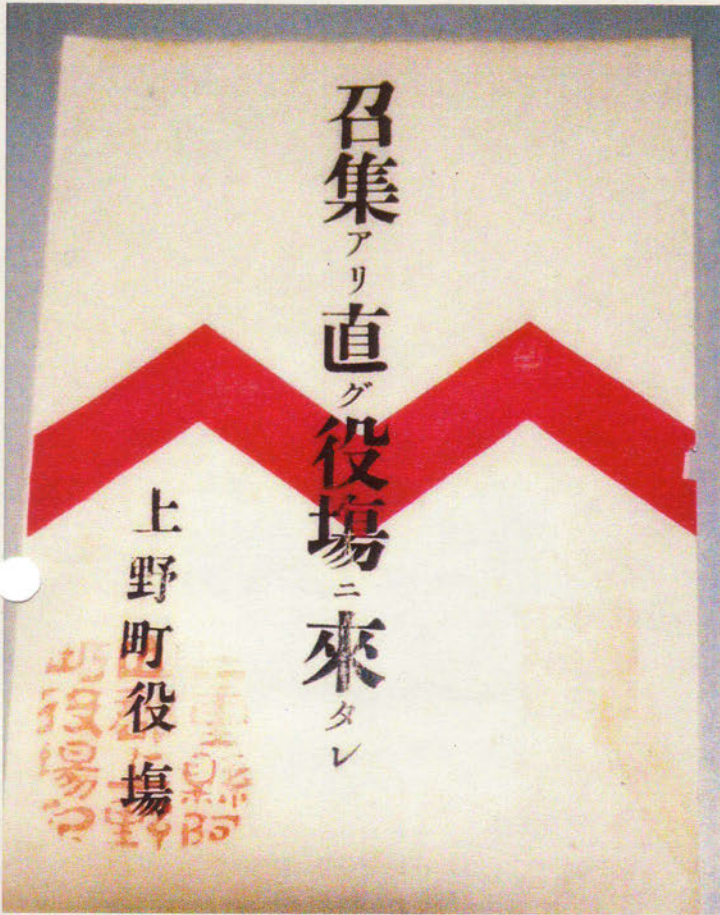 召集アリ直グ役塲ニ來タレ
上野町役塲
三重縣阿
山郡上野
町役場印